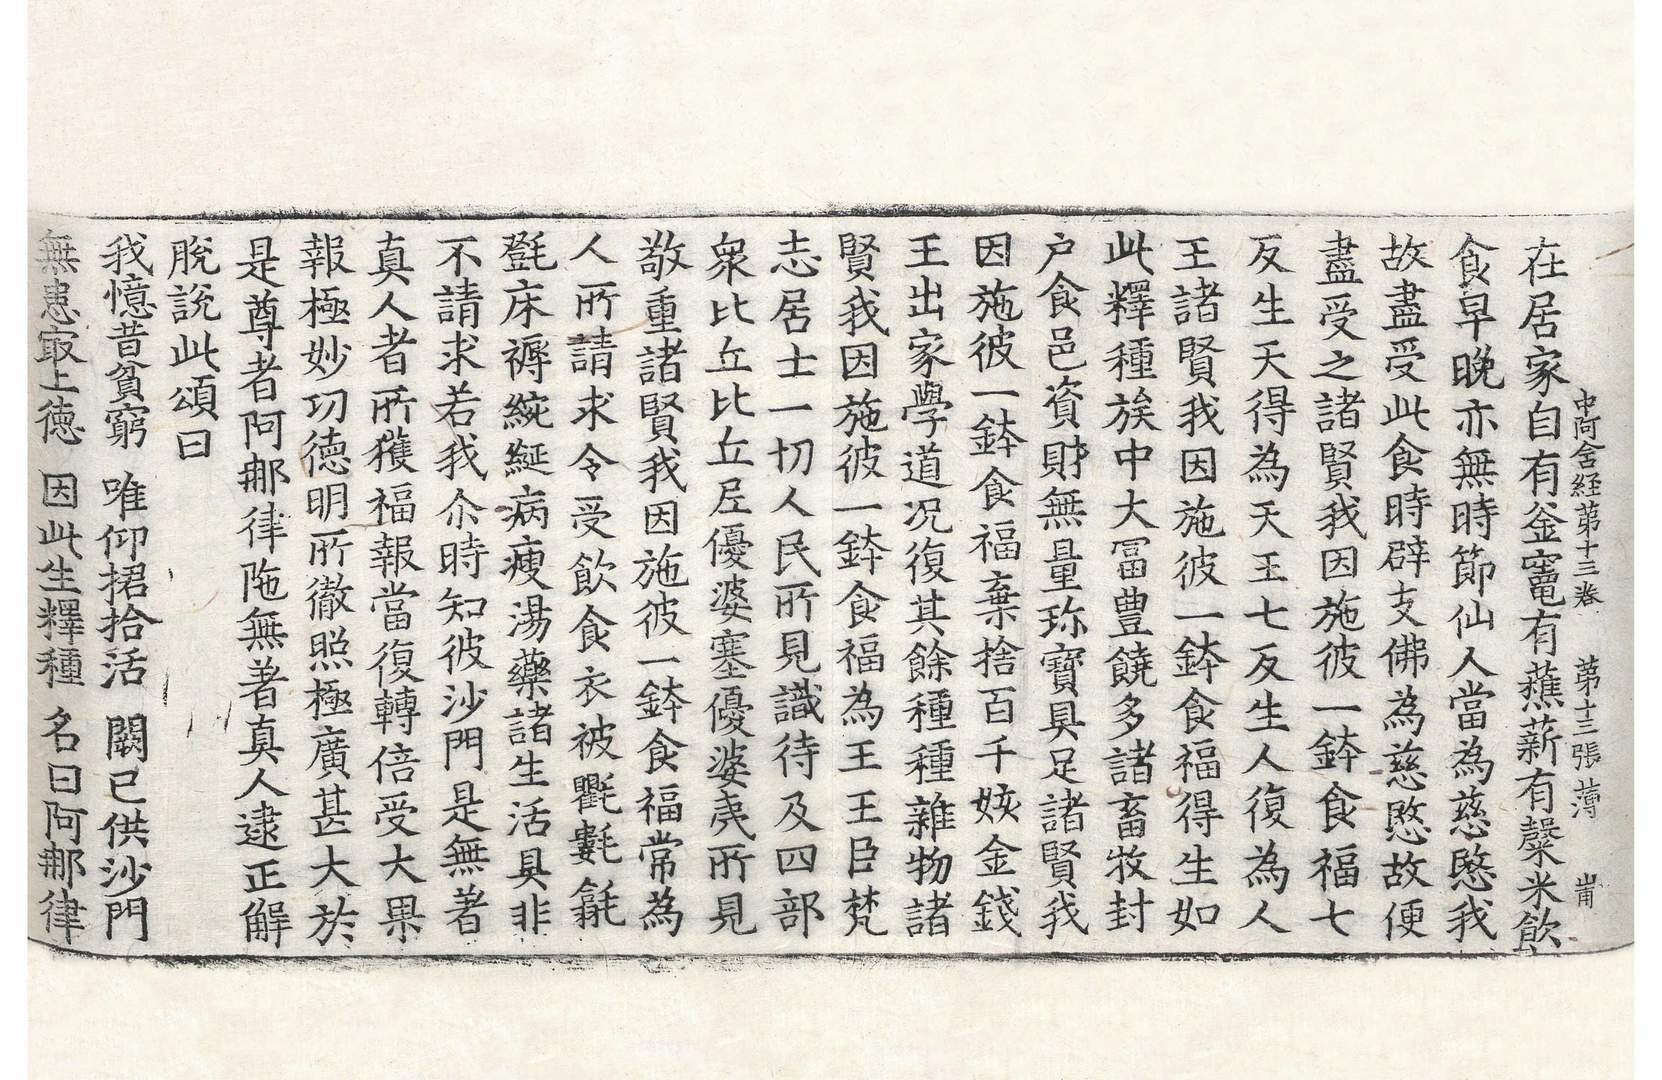 在居家自有釜竈有蕉薪有䵃米飲
中阿含経第十三卷 第十三張 薄 甫
食早晚亦無時節仙人當為慈愍我
故盡受此食時辟支佛為慈愍故便
盡受之諸賢我因施彼一鉢食福七
反生天得為天王七反生人復為人
王諸賢我因施彼一鉢食福得生如
此釋種族中大冨豊饒多諸畜牧封
户食邑資財無量珎寶具足諸賢我
因施彼一鉢食福棄捨百千姟金錢
王出家學道况復其餘種種雜物諸
賢我因施彼一鉢食福為王王臣梵
志居士一切人民所見識待及四部
衆比丘比丘尼優婆塞優婆夷所見
敬重諸賢我因施彼一鉢食福常為
人所請求令受飲食衣被氍𣰽毾
㲪床褥綩綖病瘦湯藥諸生活具非
不請求若我尒時知彼沙門是無著
真人者所獲福報當復轉倍受大果
報極妙功德明所徹照極廣甚大於
是尊者阿那律陁無著真人逮正解
脫說此頌曰
我憶昔貧窮 唯仰捃拾活 闕己供沙門
無患冣上德 因此生釋種 名曰阿那律